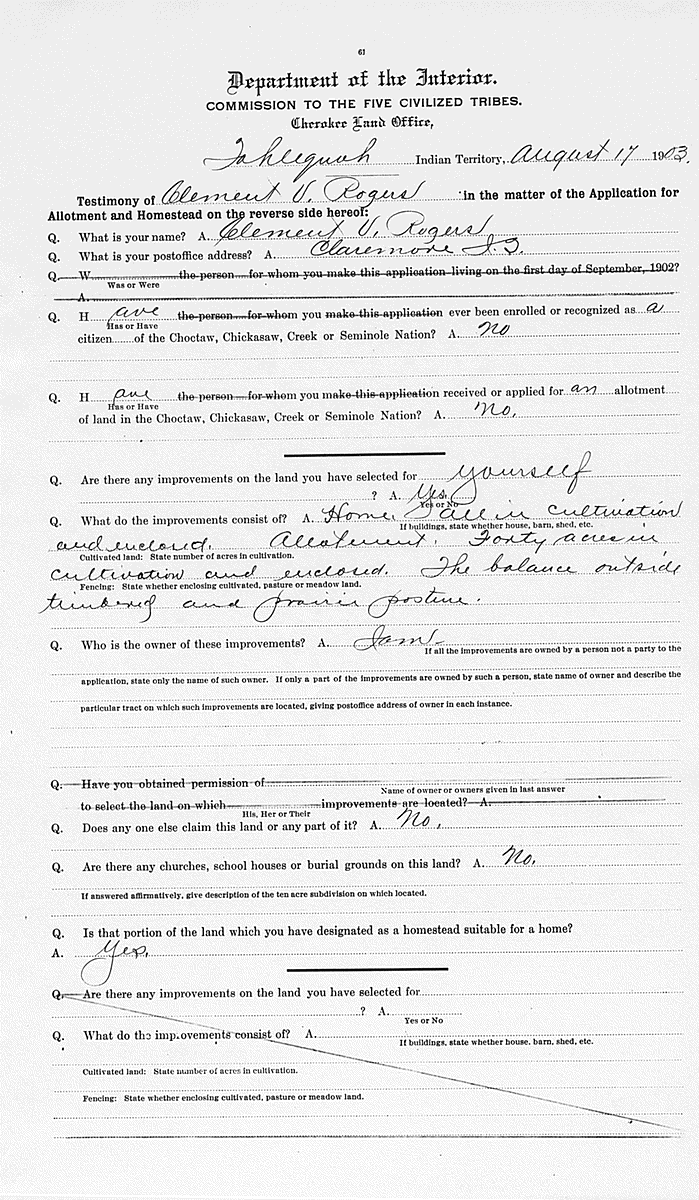 61
Department of the Interior.
COMMISSION TO THE FIVE CIVILIZED TRIBES.
Cherokee Land Office,
Tahlequah Indian Territory, August 17 1903.
Testimony of Clement V. Rogers in the matter of the Application for
Allotment and Homestead on the reverse side hereof:
Q. What is your name? A. Clement V. Rogers
Q. What is your postoffice address? A. Claremore I.T.
Q. W the person for whom you make this application living on the first day of September, 1902?
Was or Were
A.
Q. H ave the person for whom you make this application ever been enrolled or recognized as a
Has or Have
citizen of the Choctaw, Chickasaw, Creek or Seminole Nation? A. No
Q. H ave the person for whom you make this application received or applied for an allotment
Has or Have
of land in the Choctaw, Chickasaw, Creek or Seminole Nation? A. No.
Q. Are there any improvements on the land you have selected for yourself
? A. Yes.
Yes or No
Q. What do the improvements consist of? A. Home. all in cultivation
If buildings, state whether house, barn, shed, etc.
and enclosed. Allotment. Forty acres in
Cultivated land: State number of acres in cultivation.
cultivation and enclosed. The balance outside
Fencing: State whether enclosing cultivated, pasture or meadow land.
timbered and prairie posture.
Q. Who is the owner of these improvements? A. I am.
If all the improvements are owned by a person not a party to the
application, state only the name of such owner. If only a part of the improvements are owned by such a person, state name of owner and describe the
particular tract on which such improvements are located, giving postoffice address of owner in each instance.
Q. Have you obtained permission of
Name of owner or owners given in last answer
to select the land on which improvements are located? A.
His, Her or Their
Q. Does any one else claim this land or any part of it? A. No.
Q. Are there any churches, school houses or burial grounds on this land? A. No.
If answered affirmatively, give description of the ten acre subdivision on which located.
Q. Is that portion of the land which you have designated as a homestead suitable for a home?
A. Yes.
Q. Are there any improvements on the land you have selected for
? A.
Yes or No
Q. What do the improvements consist of? A.
If buildings, state whether house, barn, shed, etc.
Cultivated land: State number of acres in cultivation.
Fencing: State whether enclosing cultivated, pasture or meadow land.